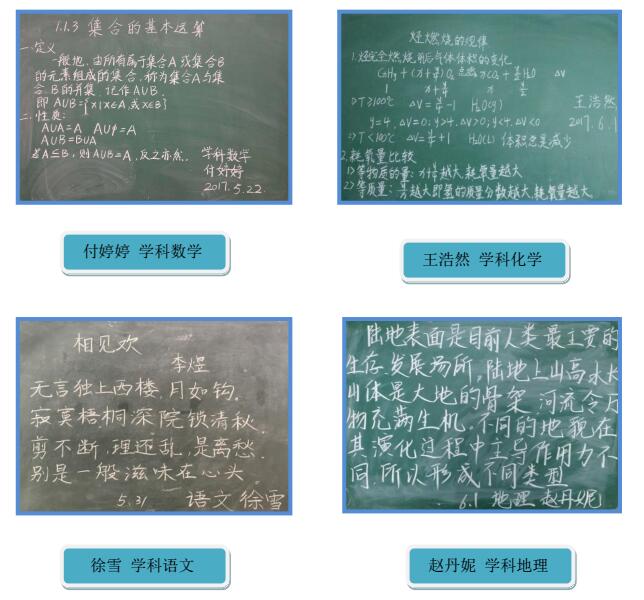 1.1.3 集合的基本运算
一.定义
一般地,由所有属于集合A或集合B
的元素组成的集合,称为集合A与集
合B的并集,记作A∪B.
即A∪B={x|x∈A,或x∈B}
二.性质:
A∪A=A A∪∮=A
A∪B=B∪A
若A⊆B,则A∪B=A,反之亦然.
学科数学
付婷婷
2017.5.22.
付婷婷 学科数学
烃燃烧的规律
1.烃完全燃烧前后气体体积的变化
CxHy+(x+y/4)O₂ 点燃 xCO₂+y/2H₂O ΔV
1 x+y/4 x y/2
1)T≥100℃ ΔV=y/4-1 H₂O(g)
y=4,ΔV=0;y>4,ΔV>0;y<4,ΔV<0
2)T<100℃ ΔV=y/4+1 H₂O(L) 体积总是减少
2.耗氧量比较
1)等物质的量:x+y/4越大,耗氧量越大
2)等质量:y/x越大即氢的质量分数越大,耗氧量越大
王浩然
2017.6.1
王浩然 学科化学
相见欢
李煜
无言独上西楼,月如钩.
寂寞梧桐深院锁清秋.
剪不断,理还乱,是离愁.
别是一般滋味在心头.
5.31 语文 徐雪
徐雪 学科语文
陆地表面是目前人类最主要的
生存、发展场所,陆地上山高水长
山体是大地的骨架,河流令万
物充满生机,不同的地貌在
其演化过程中主导作用力不
同,所以形成不同类型
6.1 地理 赵丹妮
赵丹妮 学科地理